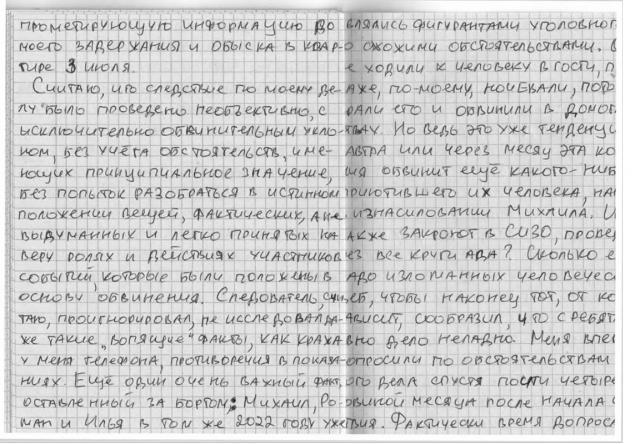 прометирующую информацию до
моего задержания и обыска в квар-
тире 3 июля.
Считаю, что следствие по моему де-
лу было проведено необъективно, с
исключительно обвинительным укло-
ном, без учёта обстоятельств, име-
ющих принципиальное значение,
без попыток разобраться в истинном
положении вещей, фактических, а не
выдуманных и легко принятых на
веру ролях и действиях участников
событий, которые были положены в
основу обвинения. Следователь, счи-
таю, проигнорировал, не исследовал да-
же такие "вопящие" факты, как кража
у меня телефона, противоречия в показа-
ниях. Ещё один очень важный факт,
оставленный за бортом: Михаил, Ро-
ман и Илья в том же 2022 году уже
влялись фигурантами уголовног
охожими обстоятельствами. В
е ходили к человеку в гости, п
аже, по-моему, пото
рали его и обвинили в домог
твах. Но ведь это уже тенденци
автра или через месяц эта ко
ия обвинит ещё какого-ниб
приютившего их человека, на
изнасиловании Михаила. И
акже закроют в СИЗО, прове
ез все круги ада? Сколько е
адо изломанных человечес
еб, чтобы наконец тот, от ко
ависит, сообразил, что с ребят
вно дело неладно. Меня впе
опросили по обстоятельствам
ого дела спустя почти четыре
овиной месяца после начала с
твия. Фактически время допрос